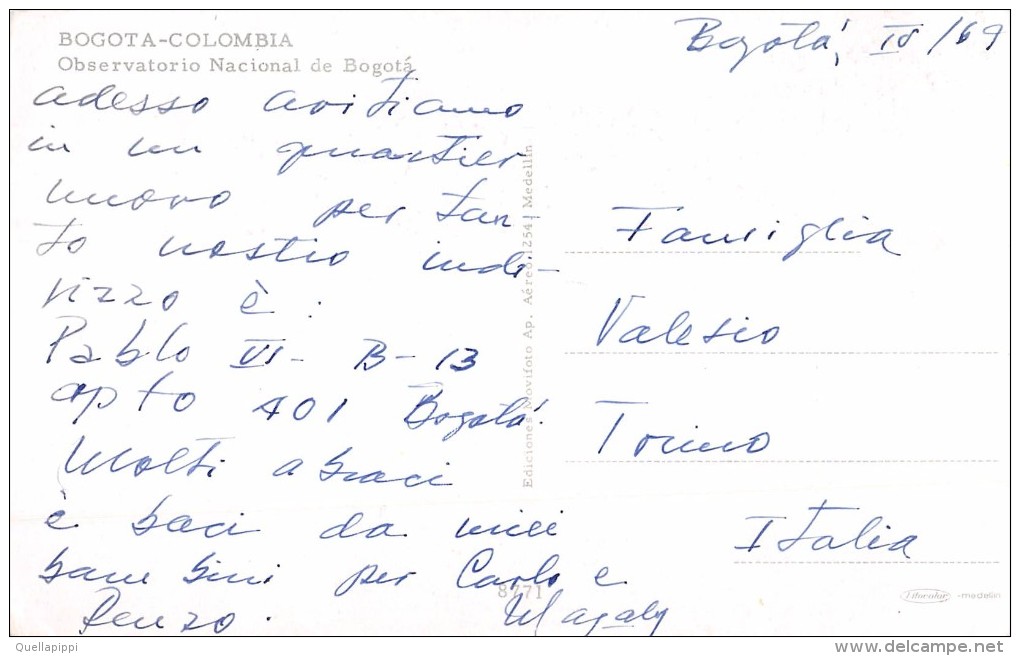 BOGOTA-COLOMBIA
Observatorio Nacional de Bogotá
Bogotá, IV/69
adesso avitiamo
in un quartier
nuovo per tan-
to nostro indi-
rizzo è:
Pablo VI- B-13
apto 401 Bogotá.
Molti abraci
è baci da miei
bambini per Carlo e
Renzo.
Magaly
Ediciones Movifoto Ap. Aéreo 1254 Medellín
Famiglia
Valesio
Torino
Italia
8771
-medellin
Quellapippi
www.delcampe.net